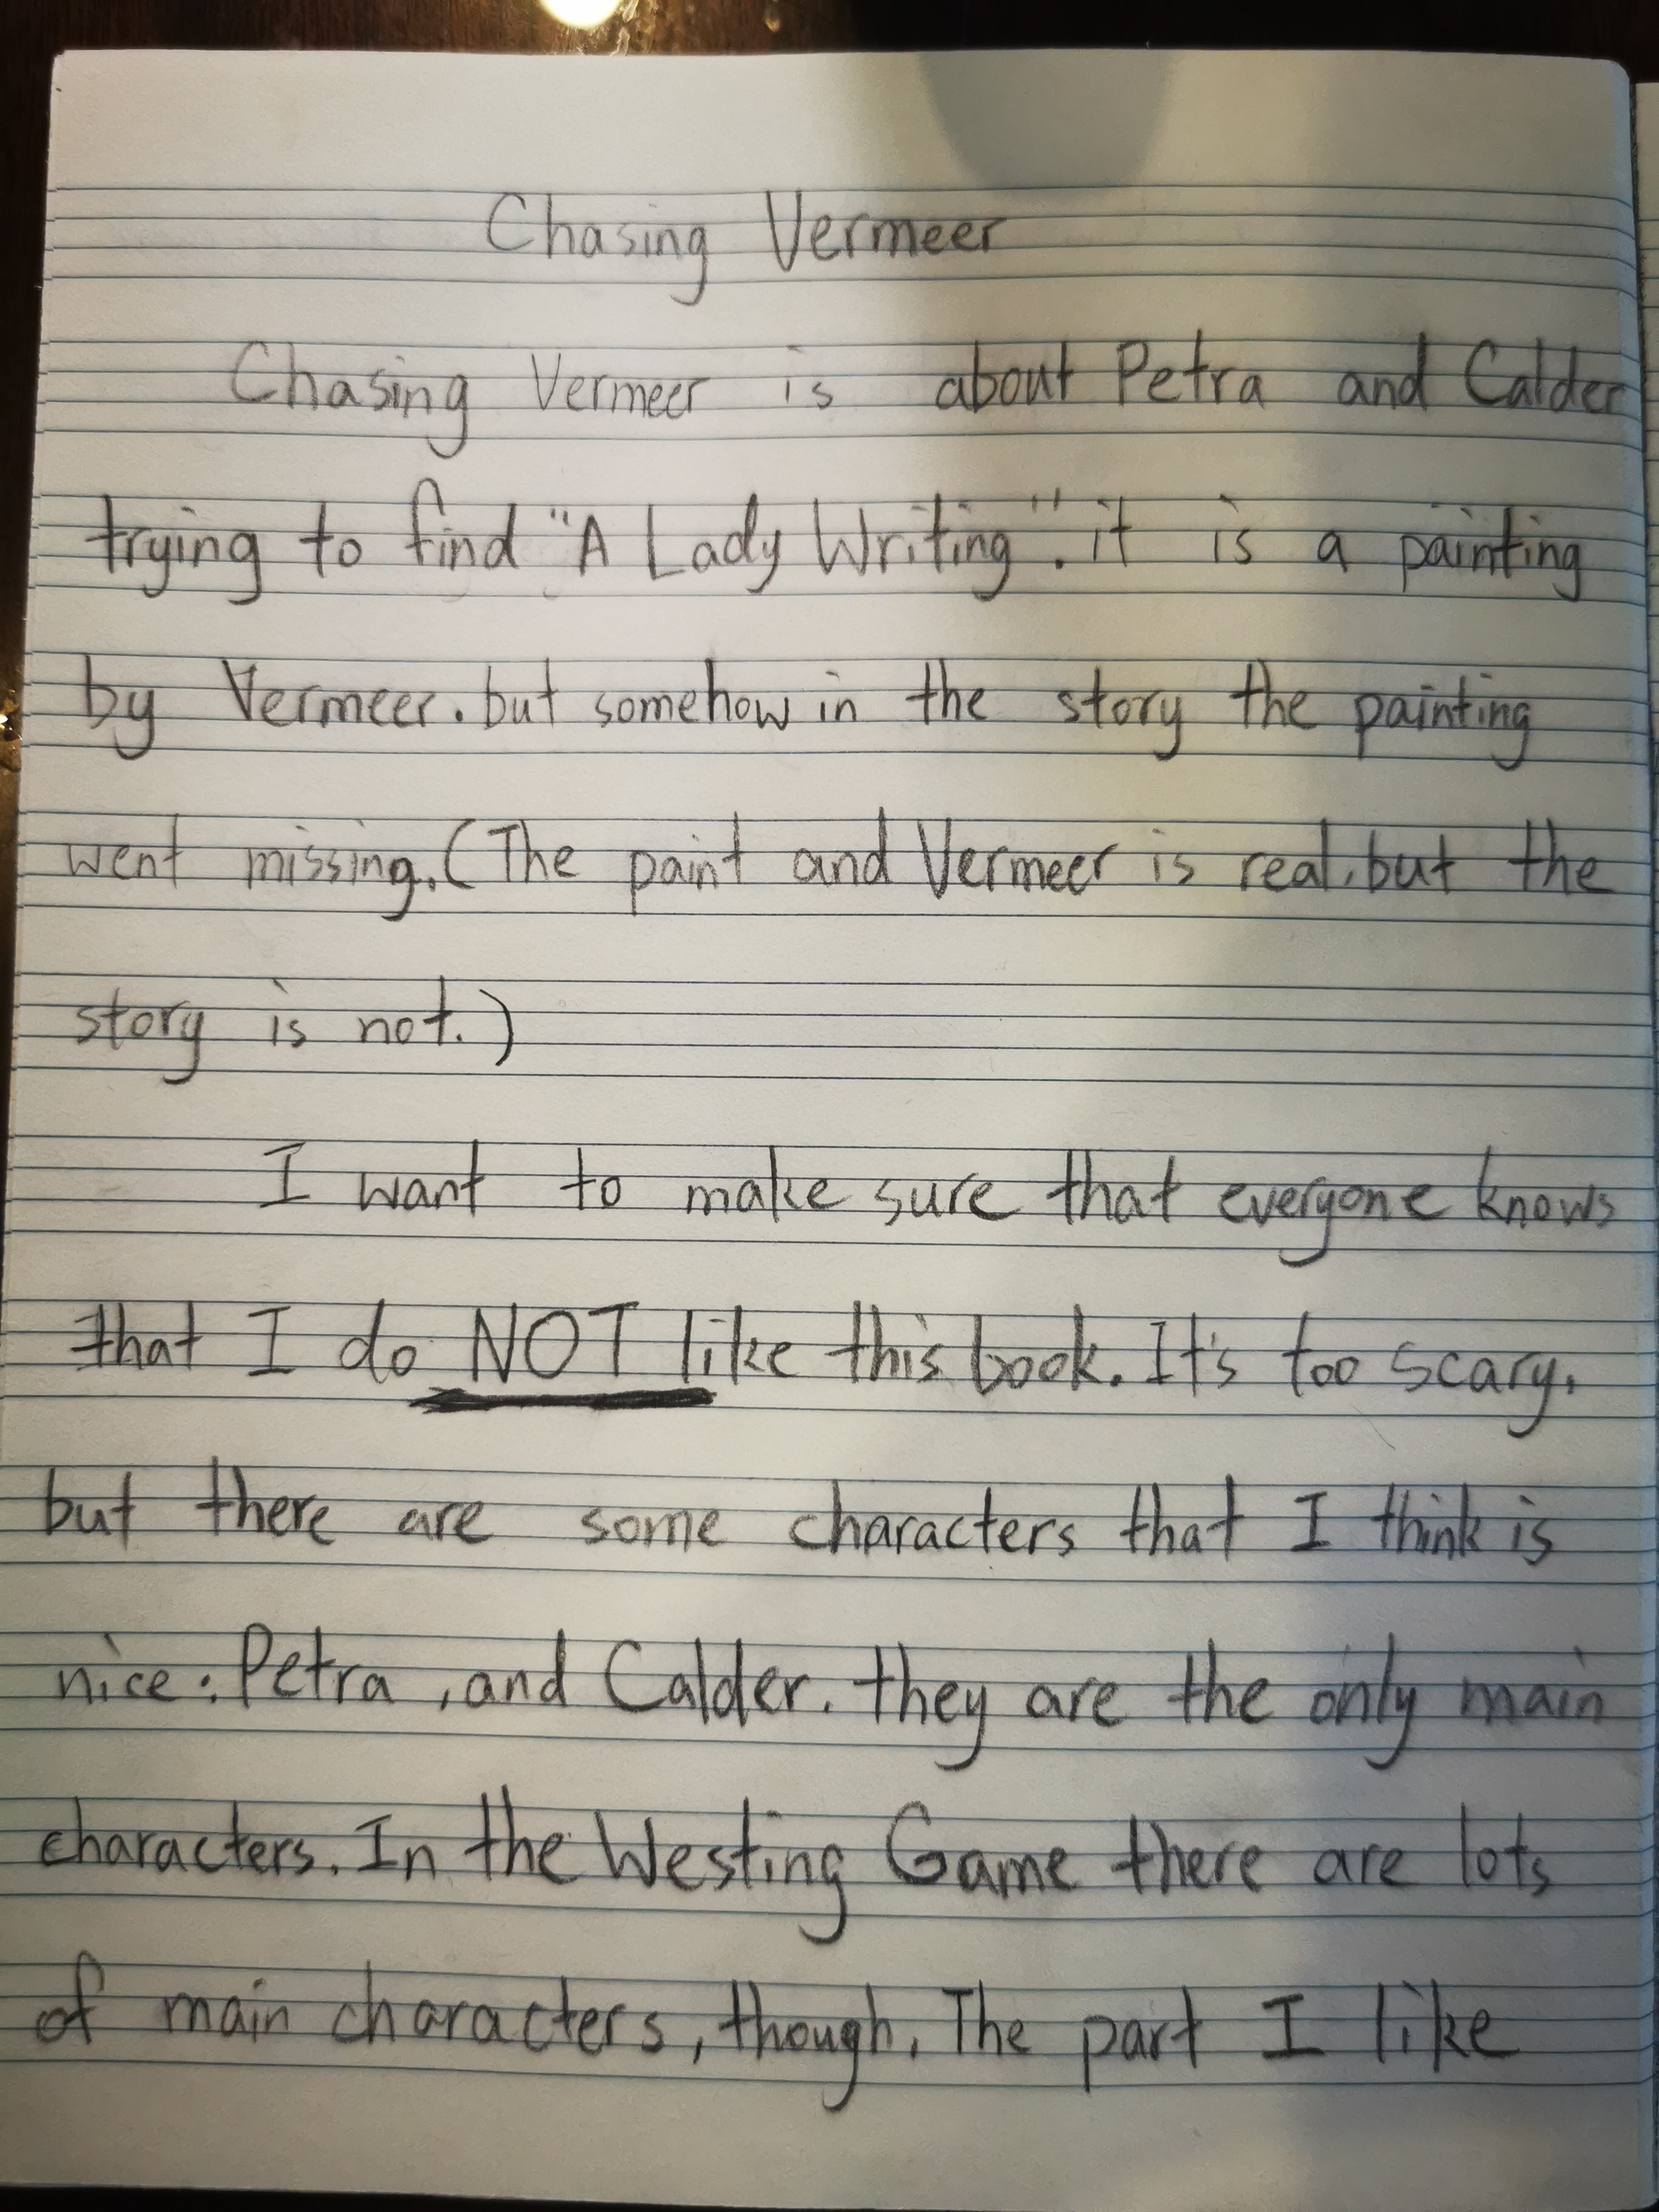 Chasing Vermeer
Chasing Vermeer is about Petra and Calder
trying to find "A Lady Writing". it is a painting
by Vermeer. but somehow in the story the painting
went missing. (The paint and Vermeer is real. but the
story is not.)
I want to make sure that everyone knows
that I do NOT like this book. It's too scary.
but there are some characters that I think is
nice: Petra, and Calder. they are the only main
characters. In the Westing Game there are lots
of main characters, though. The part I like